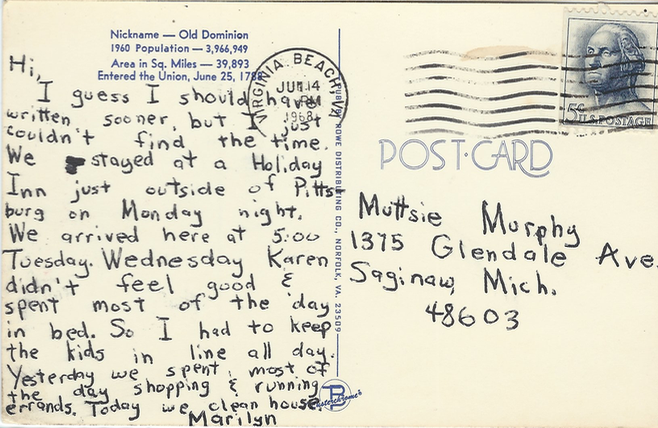 Nickname — Old Dominion
1960 Population — 3,966,949
Area in Sq. Miles — 39,893
Entered the Union, June 25, 1788
Hi,
I guess I should have
written sooner, but I just
couldn't find the time.
We stayed at a Holiday
Inn just outside of Pitts-
burg on Monday night.
We arrived here at 5:00
Tuesday. Wednesday Karen
didn't feel good &
spent most of the day
in bed. So I had to keep
the kids in line all day.
Yesterday we spent most of
the day shopping & running
errands. Today we clean house.
Marilyn
VIRGINIA BEACH, VA
JUN 14
PM
1968
DISTRIBUTING CO., NORFOLK, VA. 23509
5¢ U.S. POSTAGE
POST CARD
Muttsie Murphy
1375 Glendale Ave.
Saginaw, Mich.
48603